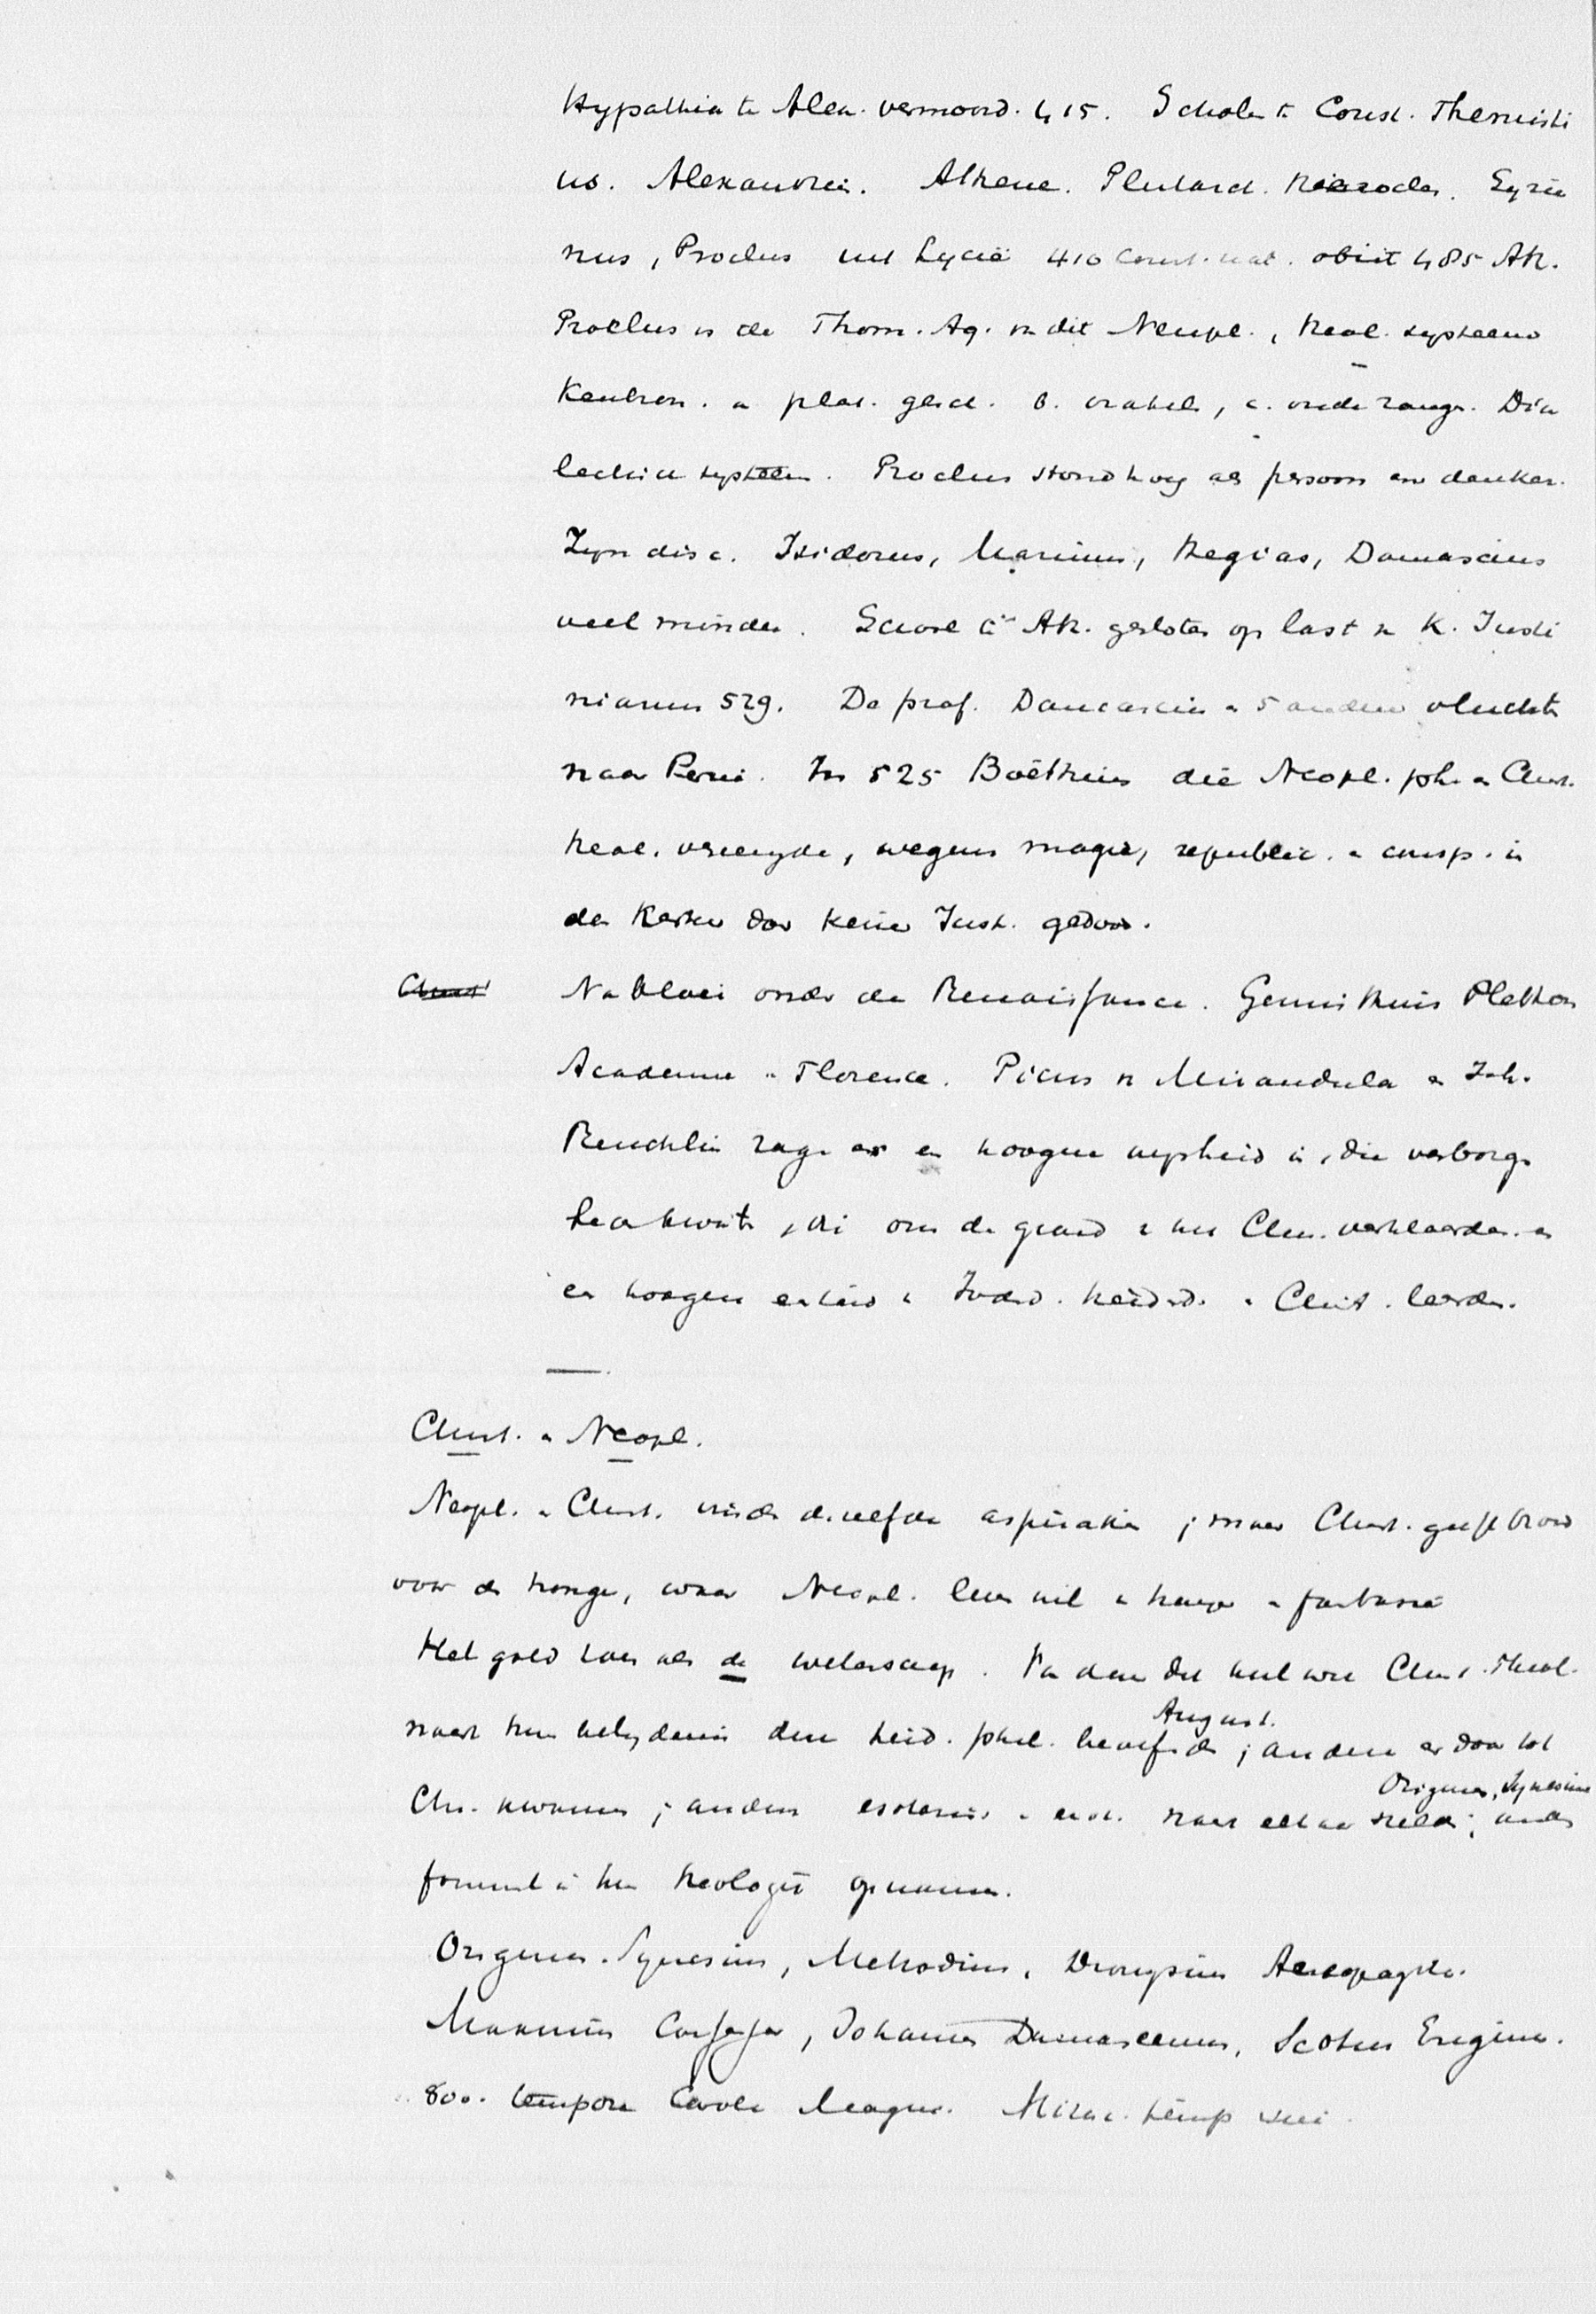 Hypathia te Alex. vermoord. 415. Scholen te Const. Themisti
us. Alexandrië. Athene. Plutarch. Hierocles. Syria
nus, Proclus uit Lycië 410 Const. nat. obiit 485 Ath.
Proclus is de Thom. Aq. v. dit Neupl., theol. systeem
Kenbron. a plat. gesch. b. orakels, c. oude zangers. Dia
lectisch systeem. Proclus stond hoog als persoon en denker.
Zijn disc. Isidorus, Marinus, Hegias, Damascius
veel minder. School te Ath. gesloten op last v. K. Justi
nianus 529. De prof. Damascius en 5 andere vluchtte
naar Perzië. In 525 Boëthius die Neopl. ph. en Christ.
theol. vereenigde, wegens magie, republic. en consp. in
den Kerker door keizer Just. gedood.
Christ Nabloei onder de Renaissance. Gemisthius Plethon
Academie te Florence. Picus v. Mirandula en Joh.
Reuchlin zagen er een hoogere wijsheid in, die verborgen
, die ons de grond v. het Chr. verklaarde en
een hoogere eenheid v. Jodend. heidend. en Christ. leerde.
Christ. en Neopl.
Neopl. en Christ. vinden dezelfde aspiratie; maar Christ. geeft brood
voor de honger, waar Neopl. leven wil v. honger en fantasie
Het gold toen als de wetenschap. Vandaar dat heel wat Christ. Theol.
naast hun belydenis deze heid. phil. beoefende; andere er door tot
August.
Chr. kwamen; andere esoteris. en exot. naast elkaar stelde; andere
Origenes, Synesius
formeel in hun theologie opnamen.
Origenes. Synesius, Methodius, Dionysius Aereopagita.
Maximus Confessor, Johannes Damascenus, Scotus Erigena.
800. tempore Caroli Magni. Mirac. temp sui.